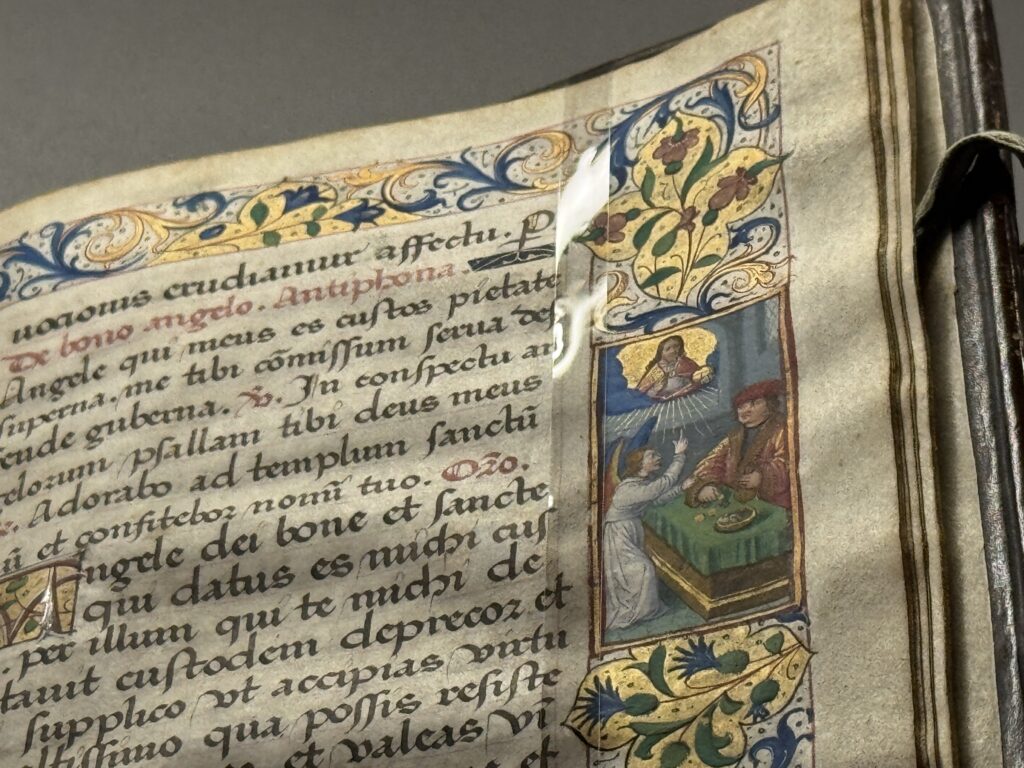 uocionis erudiamur affectu. P
De bono angelo. Antiphona.
Angele qui meus es custos pietate
superna. me tibi cõmissum serua de
guberna. ℣. In conspectu an
gelorum psallam tibi deus meus
Adorabo ad templum sanctũ
ũ et confitebor nomĩ tuo. Orõ.
Angele dei bone et sancte
qui datus es michi cus
per illum qui te michi de
tauit custodem deprecor et
supplico vt accipias virtu
altissimo qua possis resiste
et valeas vi
et